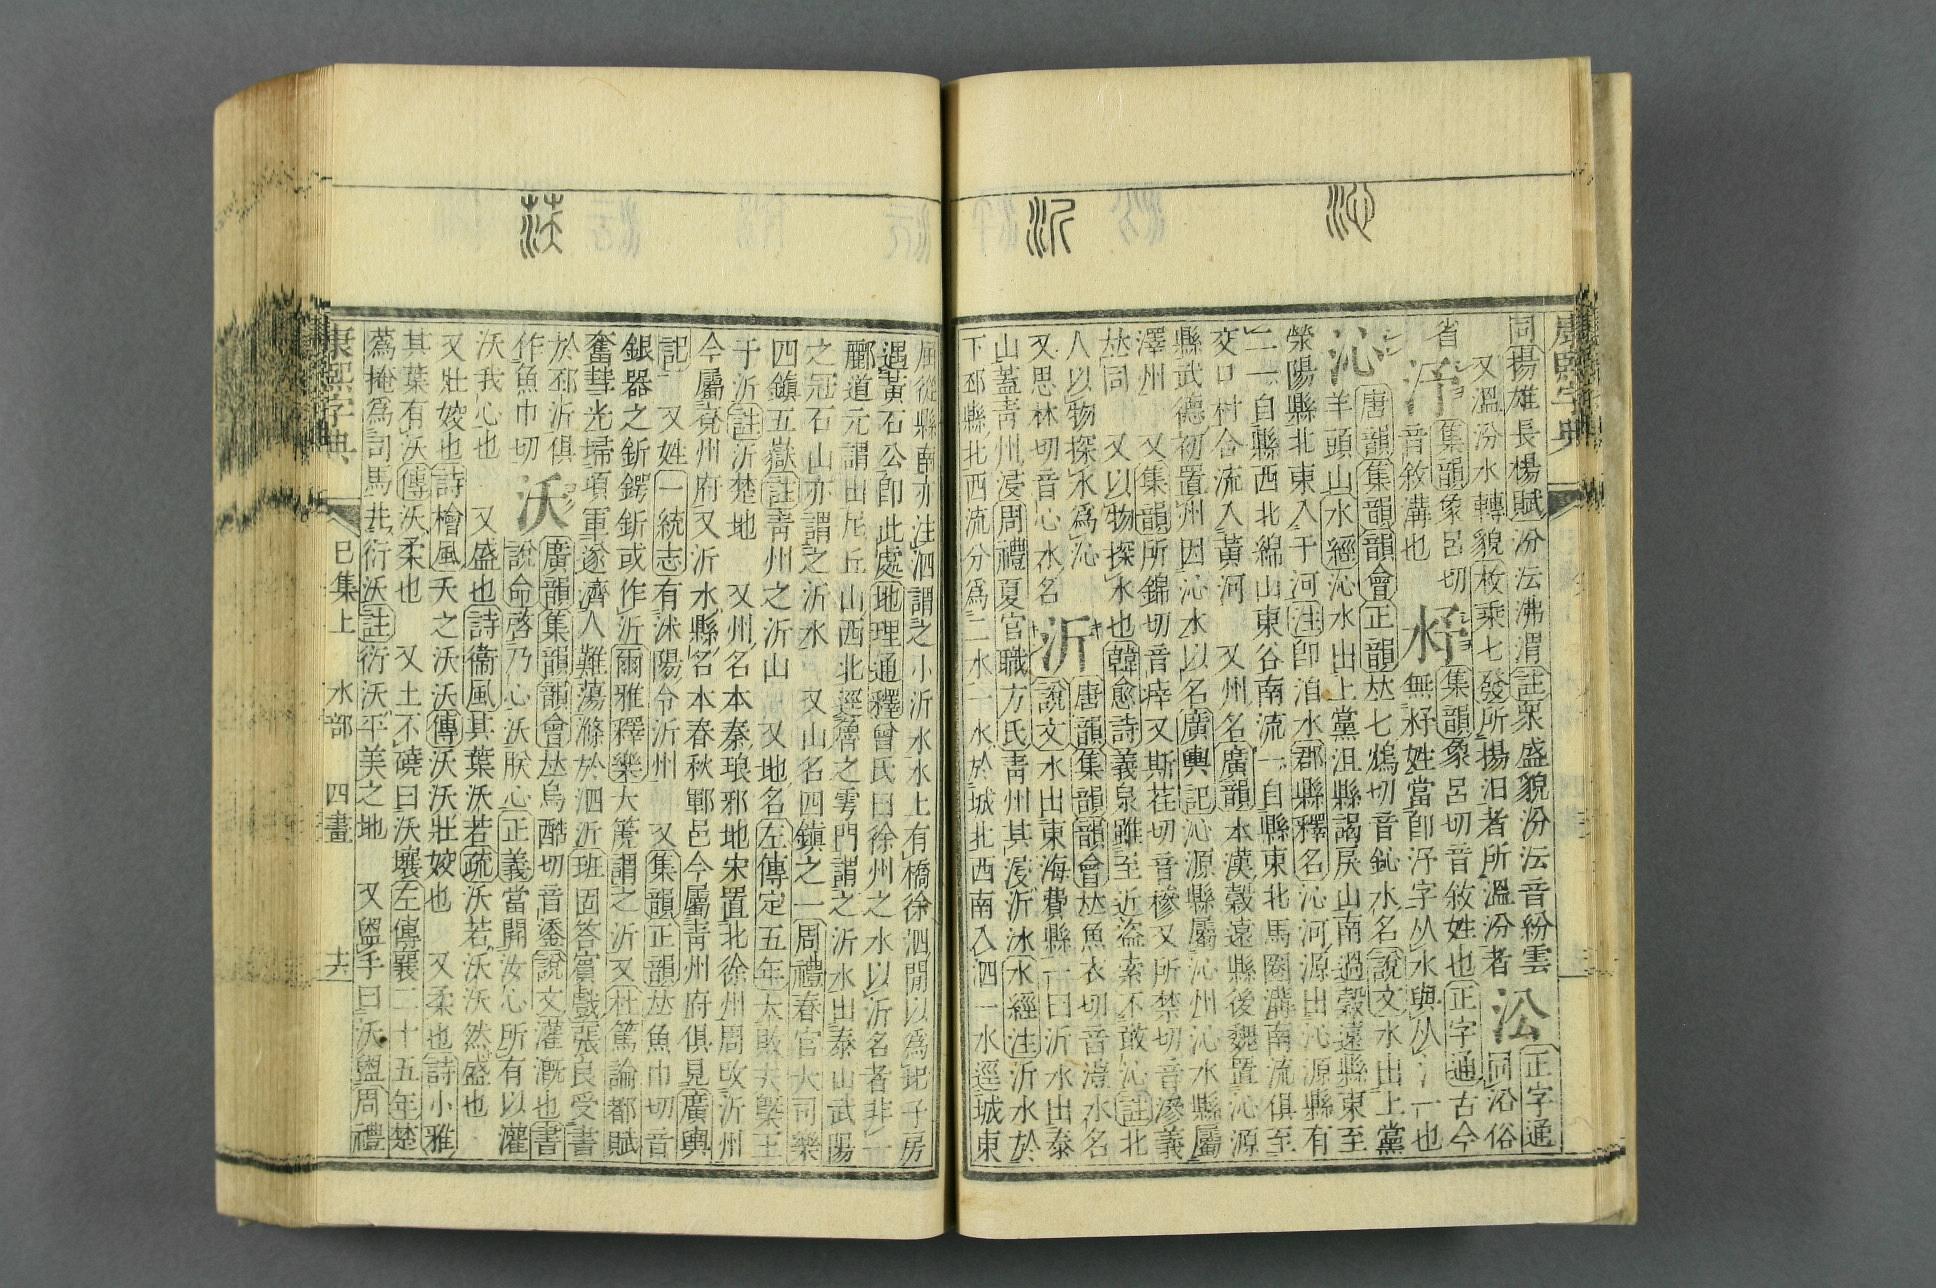 沁
沂
康熙字典
同揚雄長楊賦汾沄沸渭註衆盛貌汾沄音紛雲 㳂 正字通
又溫汾水轉貌枚乘七發所揚汨者所溫汾者 同沿俗
省
集韻象呂切 集韻象呂切音敘姓也正字通古今
音敘溝也 無㶜姓當卽汿字从水與从氵一也
沁 唐韻集韻韻會正韻𠀤七鴆切音鈊水名說文水出上黨
羊頭山水經沁水出上黨沮縣謁戾山南過穀遠縣東至
滎陽縣北東入于河注卽洎水郡縣釋名沁河源出沁源縣有
二一自縣西北綿山東谷南流一自縣東北馬圈溝南流俱至
交口村合流入黃河 又州名廣韻本漢穀遠縣後魏置沁源
縣武德初置州因沁水以名廣輿記沁源縣屬沁州沁水縣屬
澤州 又集韻所錦切音瘁又斯荏切音槮又所禁切音滲義
𠀤同 又以物探水也韓愈詩義泉雖至近盗索不敢沁註北
人以物探水爲沁 沂 唐韻集韻韻會𠀤魚衣切音澺水名
又思林切音心水名 說文水出東海費縣一曰沂水出泰
山蓋靑州浸周禮夏官職方氏靑州其浸沂沭水經注沂水於
下邳縣北西流分爲二水一水於城北西南入泗一水逕城東
茨
屈從縣南亦注泗謂之小沂水水上有橋徐泗閒以爲圯子房
遇黃石公卽此處地理通釋曾氏曰徐州之水以沂名者非一
酈道元謂出尼丘山西北逕魯之雩門謂之沂水出泰山武陽
之冠石山亦謂之沂水 又山名四鎭之一周禮春官大司樂
四鎭五嶽註靑州之沂山 又地名左傳定五年大敗夫槩王
于沂註沂楚地 又州名本秦琅邪地宋置北徐州周攺沂州
今屬兗州府又沂水縣名本春秋鄆邑今屬靑州府俱見廣輿
記 又姓一統志有沭陽令沂州 又集韻正韻𠀤魚巾切音
銀器之釿鍔釿或作沂爾雅釋樂大篪謂之沂又杜篤論都賦
奮彗光埽項軍遂濟人難蕩滌於泗沂班固答賓戲張良受書
於邳沂俱 沃 廣韻集韻韻會𠀤烏酷切音鋈說文灌漑也書
作魚巾切 說命啓乃心沃朕心正義當開汝心所有以灌
沃我心也 又盛也詩衞風其葉沃若疏沃若沃沃然盛也
又壯姣也詩檜風夭之沃沃傳沃沃壯姣也 又柔也詩小雅
其葉有沃傳沃柔也 又土不磽曰沃壤左傳襄二十五年楚
蔿掩爲司馬井衍沃註衍沃平美之地 又盥手曰沃盥周禮
康熙字典 巳集上 水部 四畫 十六